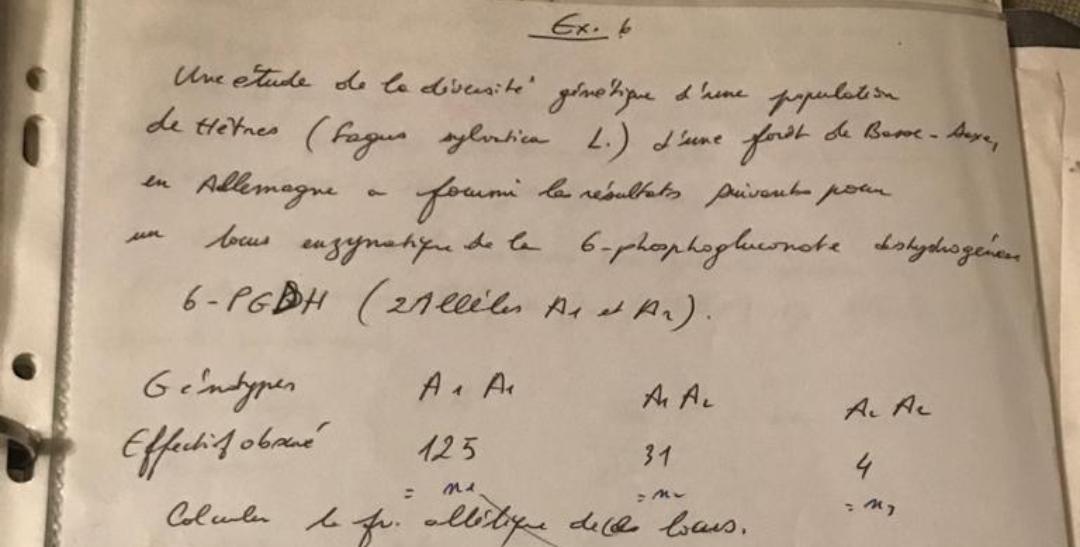 Ex. 6
Une étude de la diversité génétique d'une population
de Hêtres (Fagus sylvatica L.) d'une forêt de Basse-Saxe,
en Allemagne a fourni les résultats suivants pour
un locus enzymatique de la 6-phosphogluconate déshydrogénase
6-PGDH (2 Allèles A1 et A2).
Génotypes A1 A1 A1 A2 A2 A2
Effectif observé 125 31 4
= n1 = n2 = n3
Calculer la fr. allélique de locus.